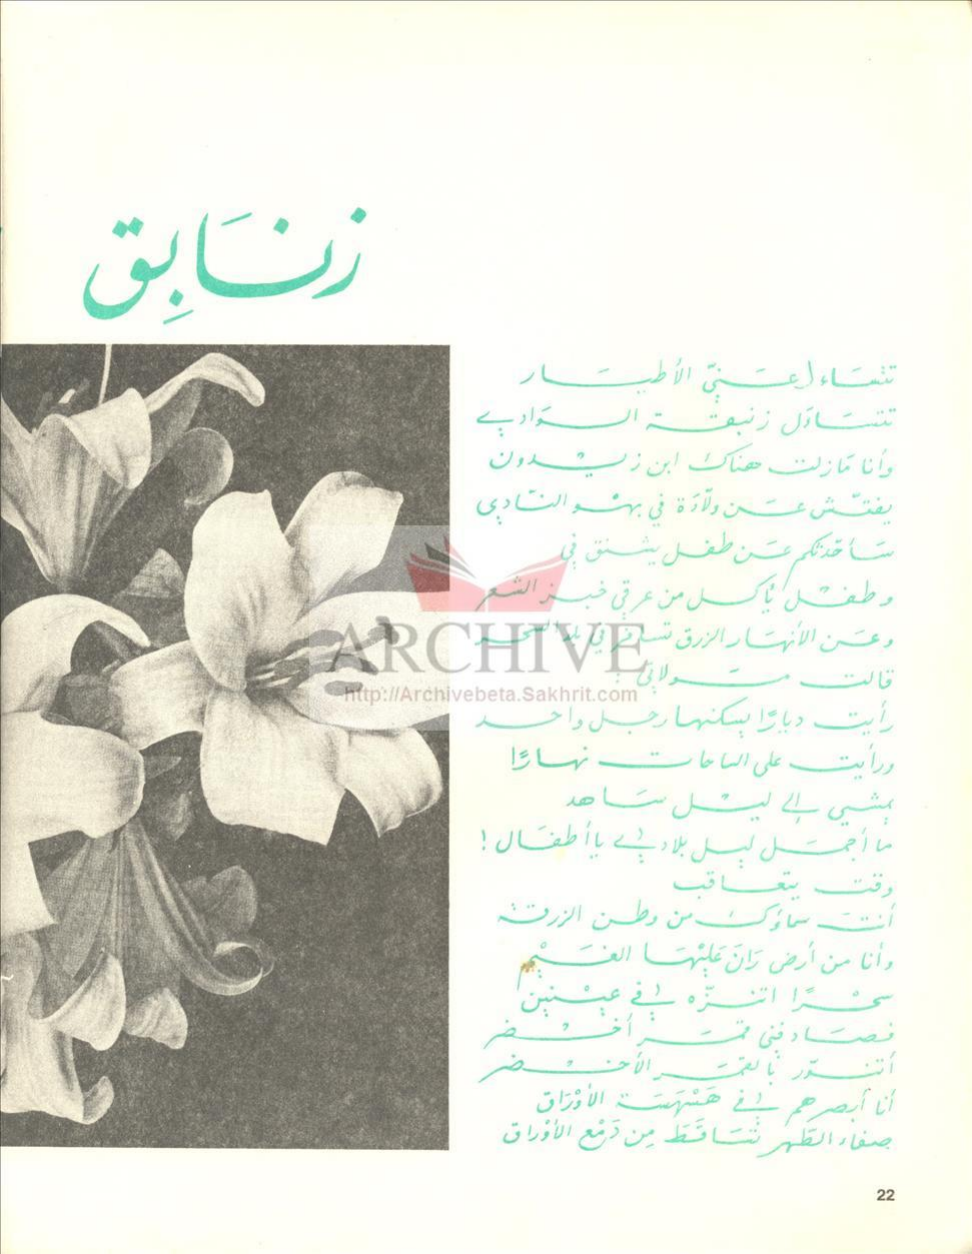 زنَابِق
تتفاءل عَنّي الأطيار
تتساوَل زنبقة الوادي
وأنا مَازلت هناك ابن زيدون
يفتّش عَن ولّادَة في بهْو النّادي
سَأحدّثكم عَن طفل يشنق في
وطفْل يأكل من عرقي خبز الشعر
وعَن الأنهَار الزرق تسافر في
قالت مَولاتي :
رأيت ديارًا يسكنها رجل واحد
ورأيت على الساحات نهارًا
يمشي إلى ليْل سَاهد
ما أجمَل ليل بلادي يا أطفَال !
وقت يتعاقب
أنتَ سماؤك من وطن الزرقة
وأنا من أرض رَانَ عَليْهَا الغَيْم
سحْرًا اتنزّه في عيْنين
فصَادفني قمَر أخْضر
أتنوّر بالقمَر الأخْضر
أنا أبصرهم في هَسْهَسَة الأوْرَاق
صفاء الطّهر تَسَاقَطَ مِن دَمْع الأوْراق
ARCHIVE
http://Archivebeta.Sakhrit.com
22